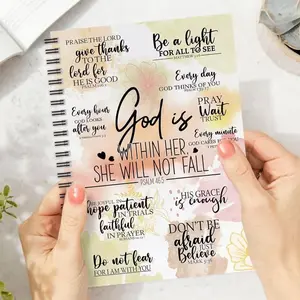 PRAISE THE LORD
give thanks
TO THE
lord for
HE IS GOOD
Be a light
FOR ALL TO SEE
Every day
GOD THINKS OF YOU
Every hour
GOD LOOKS
after you
PRAY
Wait
TRUST
Every minute
GOD CARES FOR YOU
God is
WITHIN HER,
SHE WILL NOT FALL
PSALM 46:5
BE JOYFUL IN
hope patient
IN TRIALS
faithful
IN PRAYER
HIS GRACE
is enough
DON'T BE
afraid
JUST
Believe
MARK 5:36
Do not fear
FOR I AM WITH YOU